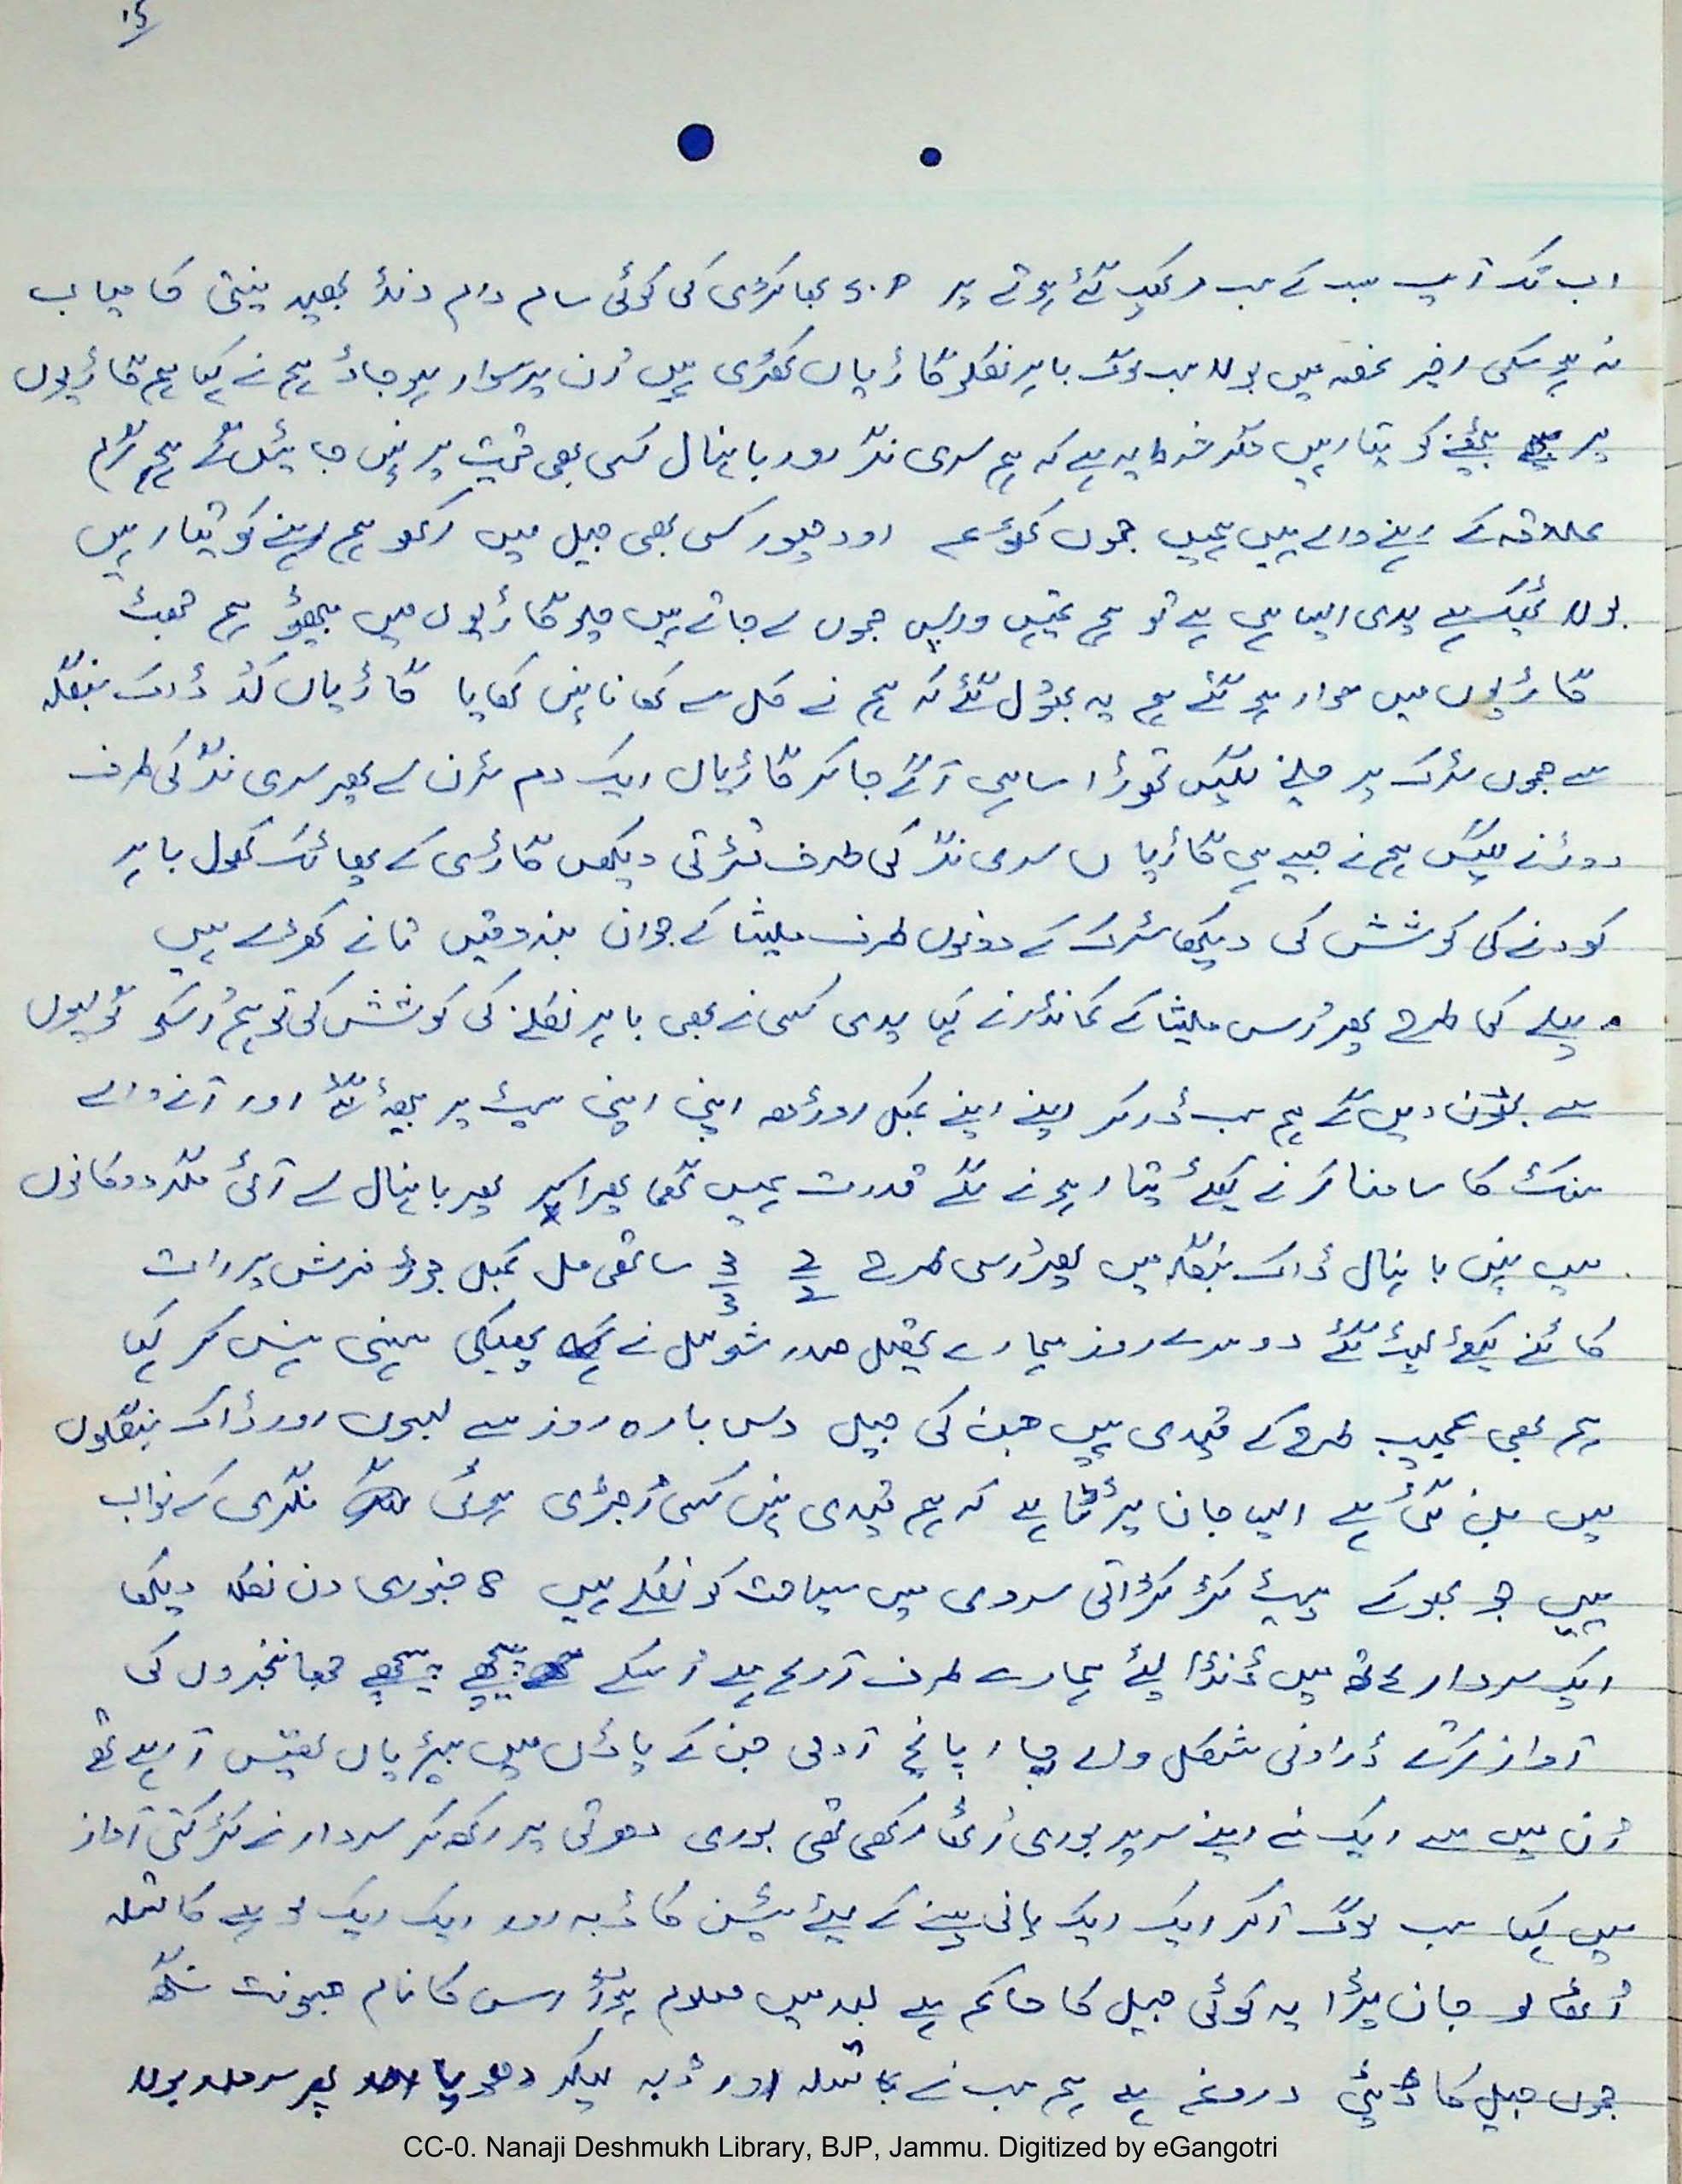 ۱۵
اب تک آپ سب کے سب مر کھپ گئے ہوتے پر S.P بھاکڑی کی کوئی سام دام ڈنڈ بھید نیتی کامیاب
نہ ہو سکی اخیر غصہ میں بولا سب لوگ باہر نکلو گاڑیاں کھڑی ہیں اُن پر سوار ہو جاؤ ہم نے کہا ہم گاڑیوں
پر بیٹھنے کو تیار ہیں مگر شرط یہ ہے کہ ہم سری نگر اور بانہال کسی بھی قیمت پر نہیں جائیں گے ہم گرم
علاقہ کے رہنے والے ہیں ہمیں جموں کٹھوعہ اودھمپور کسی بھی جیل میں رکھو ہم رہنے کو تیار ہیں
بولا ٹھیک ہے یدی ایسا ہی ہے تو ہم تمہیں واپس جموں لے جاتے ہیں چلو گاڑیوں میں بیٹھو ہم جھٹ
گاڑیوں میں سوار ہو گئے ہم یہ بھول گئے کہ ہم نے کل سے کھانا نہیں کھایا گاڑیاں کُد ڈاک بنگلہ
سے جموں سڑک پر چلنے لگیں تھوڑا سا ہی آگے جا کر گاڑیاں ایک دم مڑن لے پھر سری نگر کی طرف
دوڑنے لگیں ہم نے جیسے ہی گاڑیاں سری نگر کی طرف مڑتی دیکھیں گاڑی کے پھاٹک کھول باہر
کودنے کی کوشش کی دیکھا سڑک کے دونوں طرف ملیشا کے جوان بندوقیں تانے کھڑے ہیں
پہلے کی طرح پھر اُس ملیشا کے کمانڈر نے کہا یدی کسی نے بھی باہر نکلنے کی کوشش کی تو ہم اُسکو گولیوں
سے بھون دیں گے ہم سب ڈر کر اپنے اپنے کمبل اوڑھ اپنی اپنی سیٹ پر بیٹھ گئے اور آنے والے
سنکٹ کا سامنا کرنے کیلئے تیار ہونے لگے قدرت ہمیں گھما پھرا کر پھر بانہال لے آئی مگر دوکانوں
میں نہیں بانہال ڈاک بنگلہ میں پھر اُسی طرح 2/2 3/3 ساتھی مل کمبل جوڑ فرش پر رات
کاٹنے کیلئے لیٹ گئے دوسرے روز ہمارے تحصیل صدر شو مل نے پھیکی ہنسی ہنس کر کہا
ہم بھی عجیب طرح کے قیدی ہیں جن کی جیل دس بارہ روز سے بسوں اور ڈاک بنگلوں
میں بن گئی ہے ایسا جان پڑتا ہے کہ ہم قیدی نہیں کسی اُجڑی ہوئی نگری کے نواب
ہیں جو بھوکے پیٹ کڑکڑاتی سردی میں سیاحت کو نکلے ہیں 8 جنوری دن نکلا دیکھا
ایک سردار ہاتھ میں ڈنڈا لئے ہمارے طرف آ رہا ہے اُسکے پیچھے پیچھے جھانجروں کی
آواز کرتے ڈراونی شکل والے چار پانچ آدمی جن کے پاؤں میں بیڑیاں تھیں آ رہے تھے
اُن میں سے ایک نے اپنے سر پر بوری اُٹھا رکھی تھی بوری دھرتی پر رکھ کر سردار نے کڑکتی آواز
میں کہا سب لوگ آکر ایک ایک پانی پینے کے لئے ٹین کا ڈبہ اور ایک ایک لوہے کا تسلہ
اُٹھا لو جان پڑا یہ کوئی جیل کا حاکم ہے بعد میں معلوم ہوا اس کا نام جسونت سنگھ
جموں جیل کا ڈپٹی دروغہ ہے ہم سب نے تسلہ اور ڈبہ لیکر دھویا پھر سردار بولا
CC-0. Nanaji Deshmukh Library, BJP, Jammu. Digitized by eGangotri